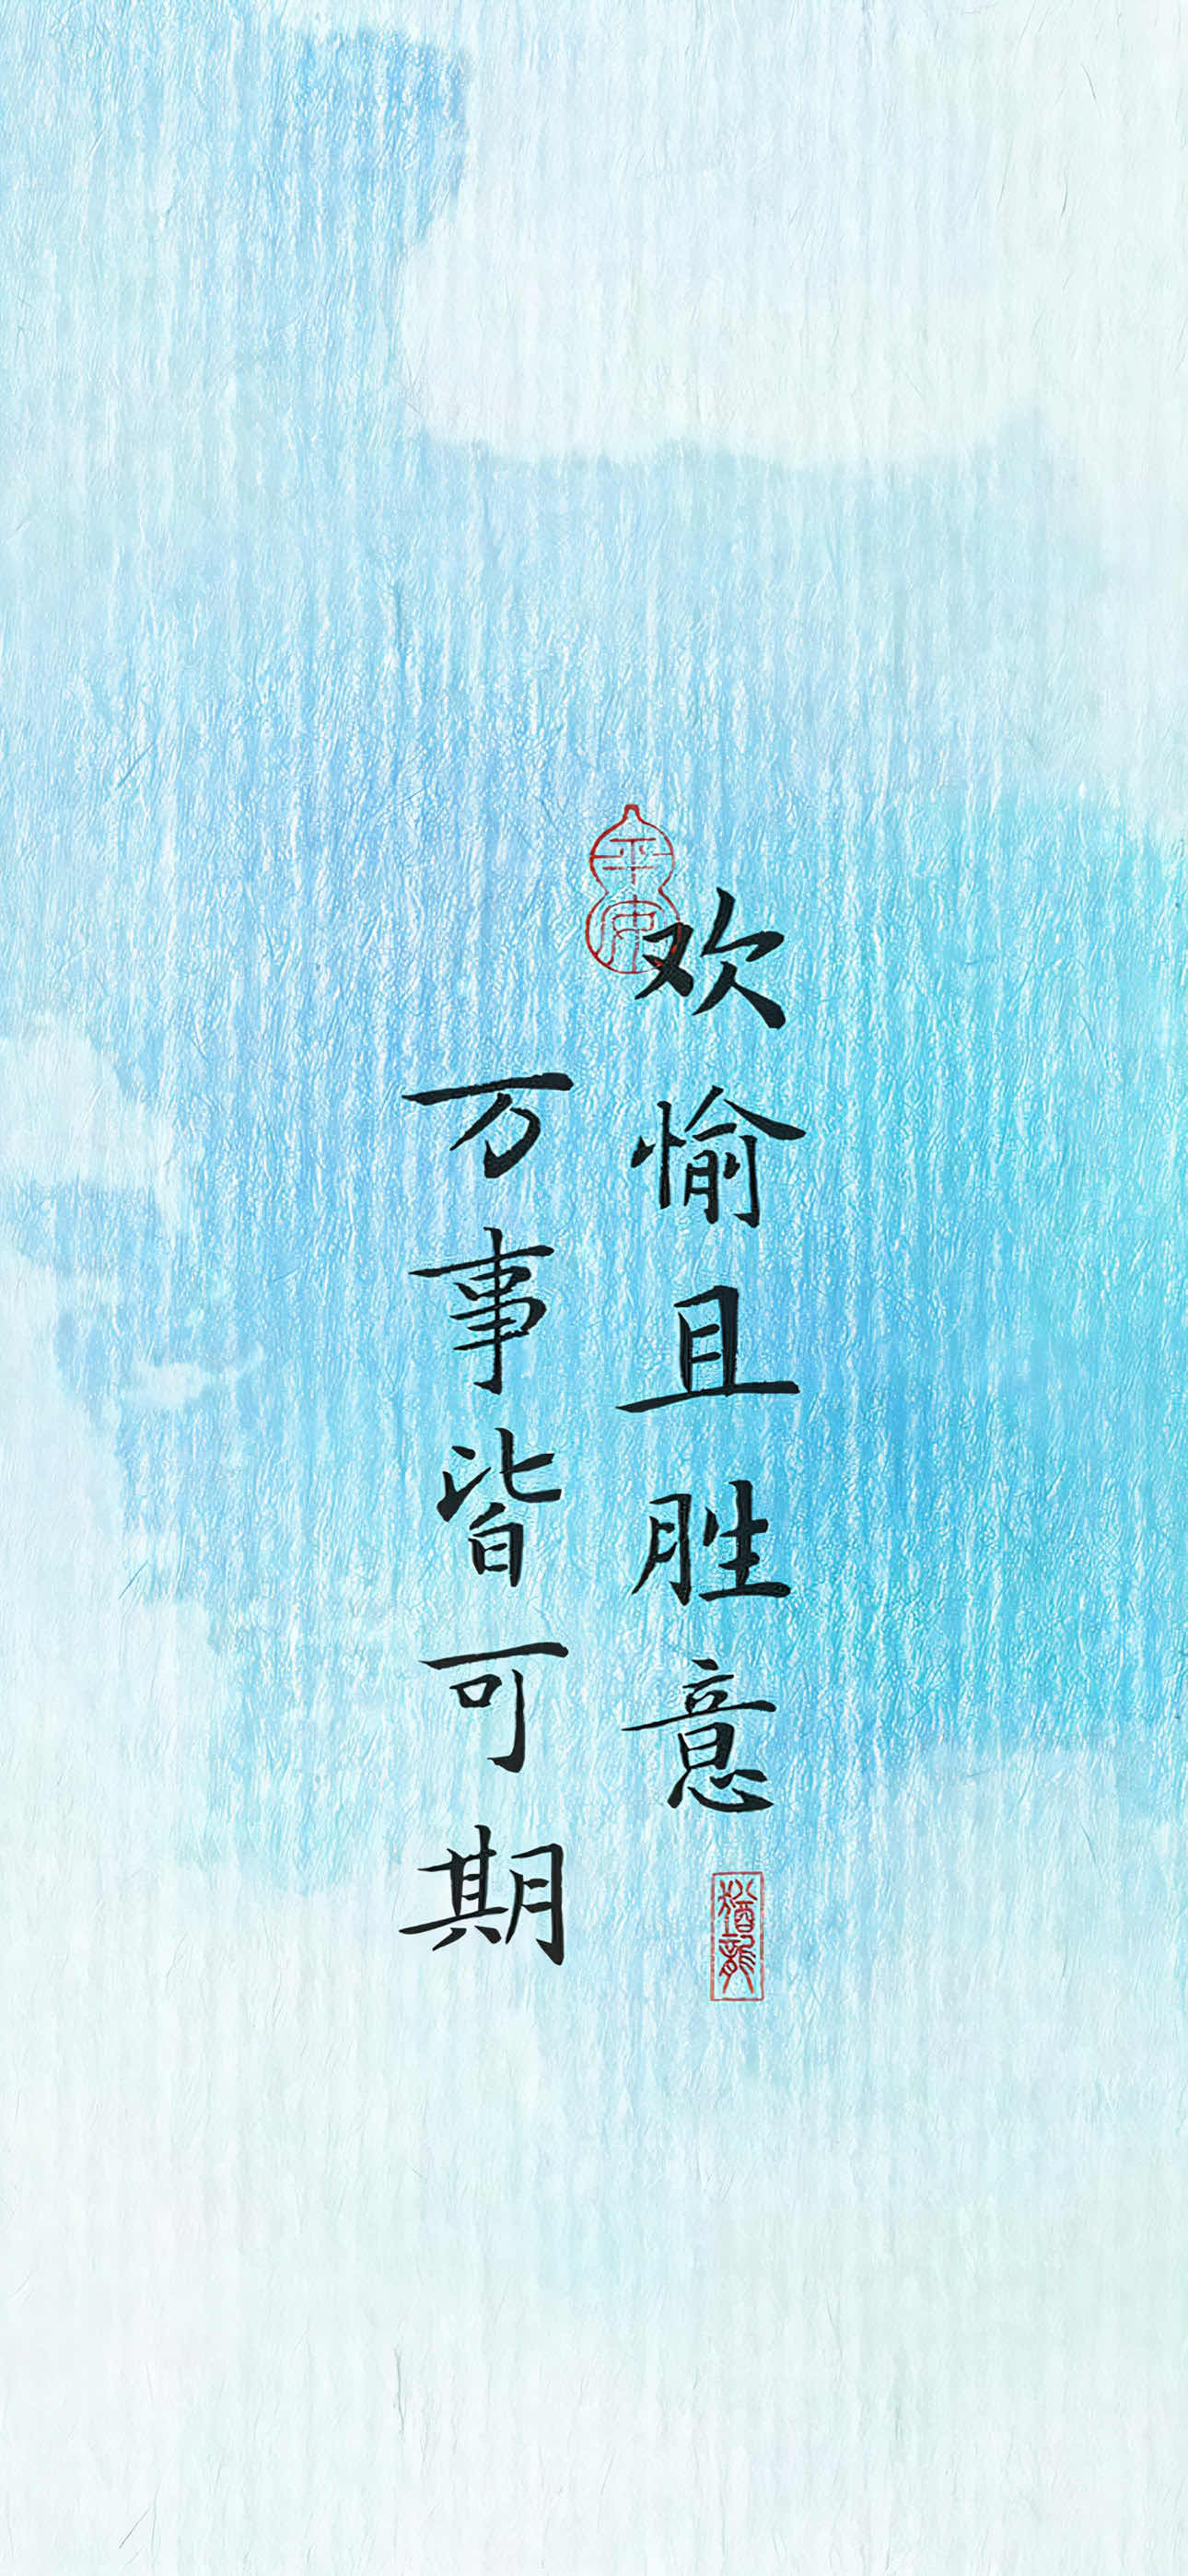 平安
欢愉且胜意
万事皆可期